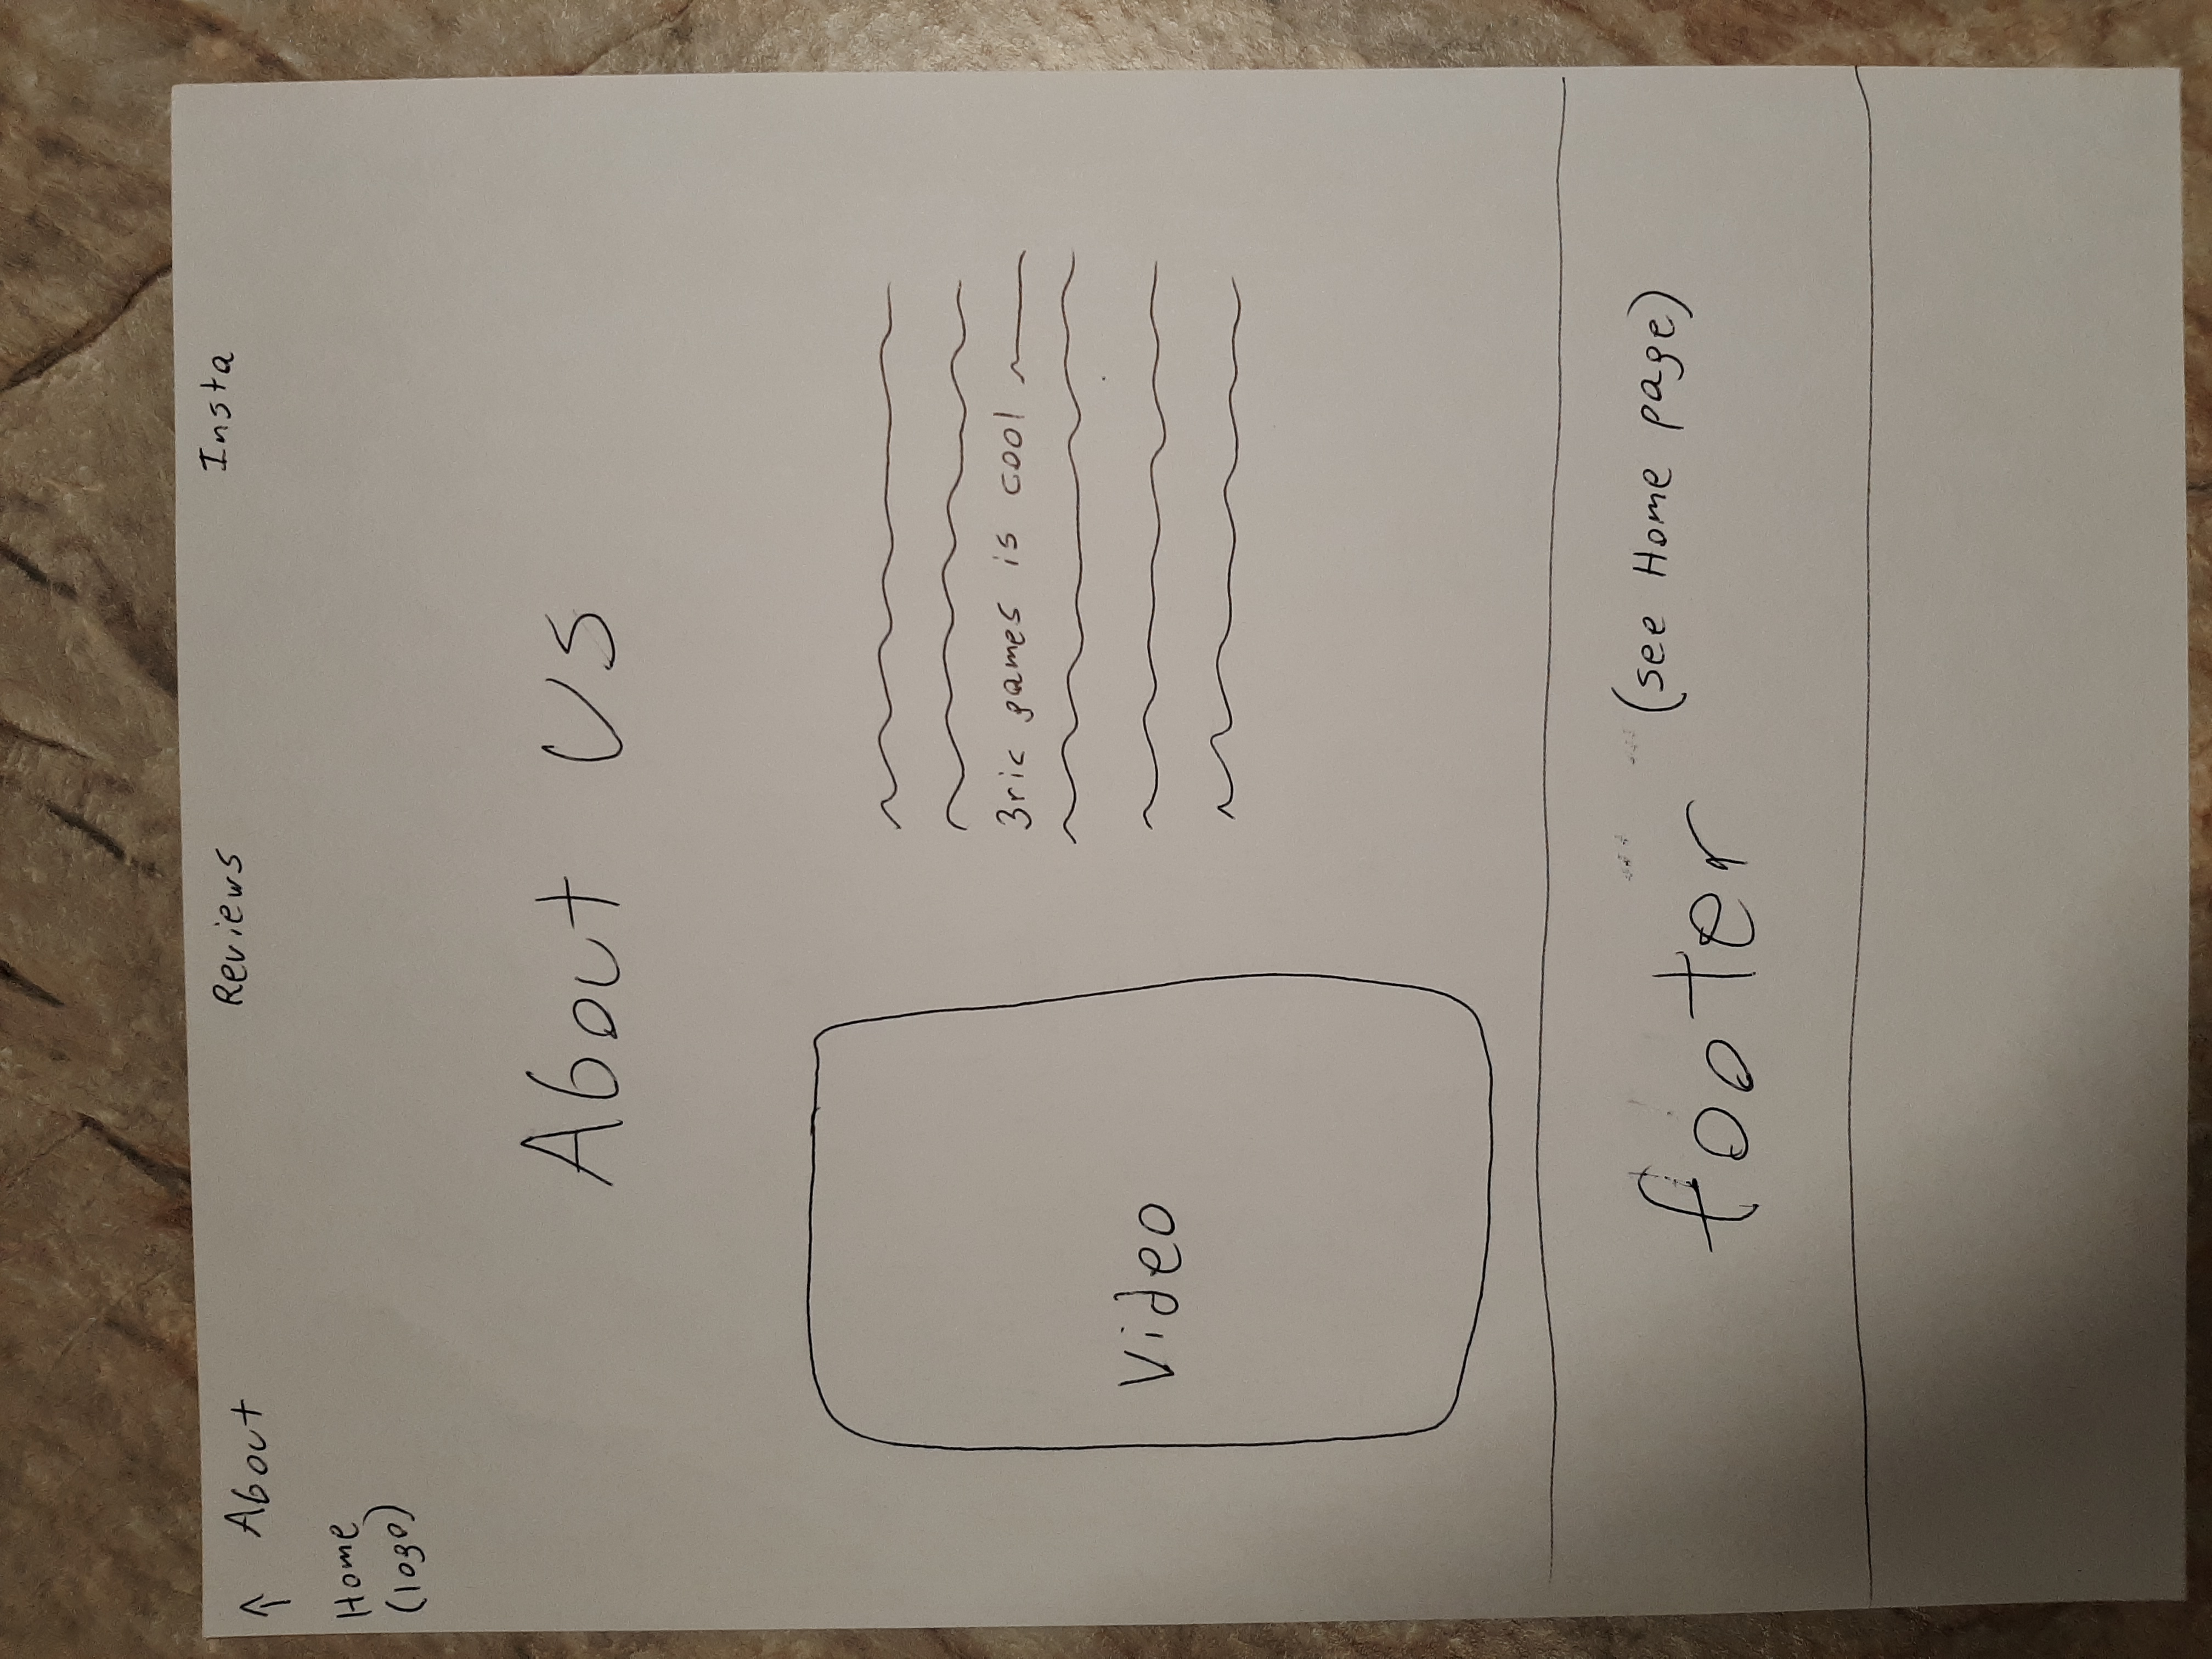 About Reviews Insta
Home
(logo)
About Us
3ric games is cool
Video
footer (see Home page)